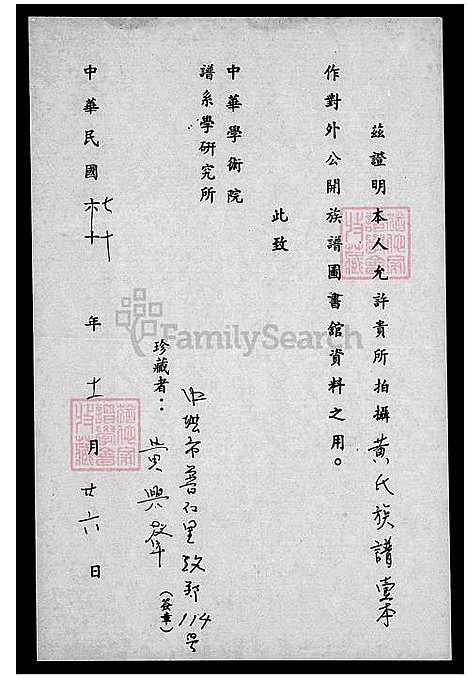 茲證明本人允許貴所拍攝黃氏族譜壹本
作對外公開族譜圖書館資料之用。
此致
中華學術院
譜系學研究所
珍藏者：黃興
(簽章)
市普仁里
114號
中華民國七十年十一月廿六日
FamilySearch